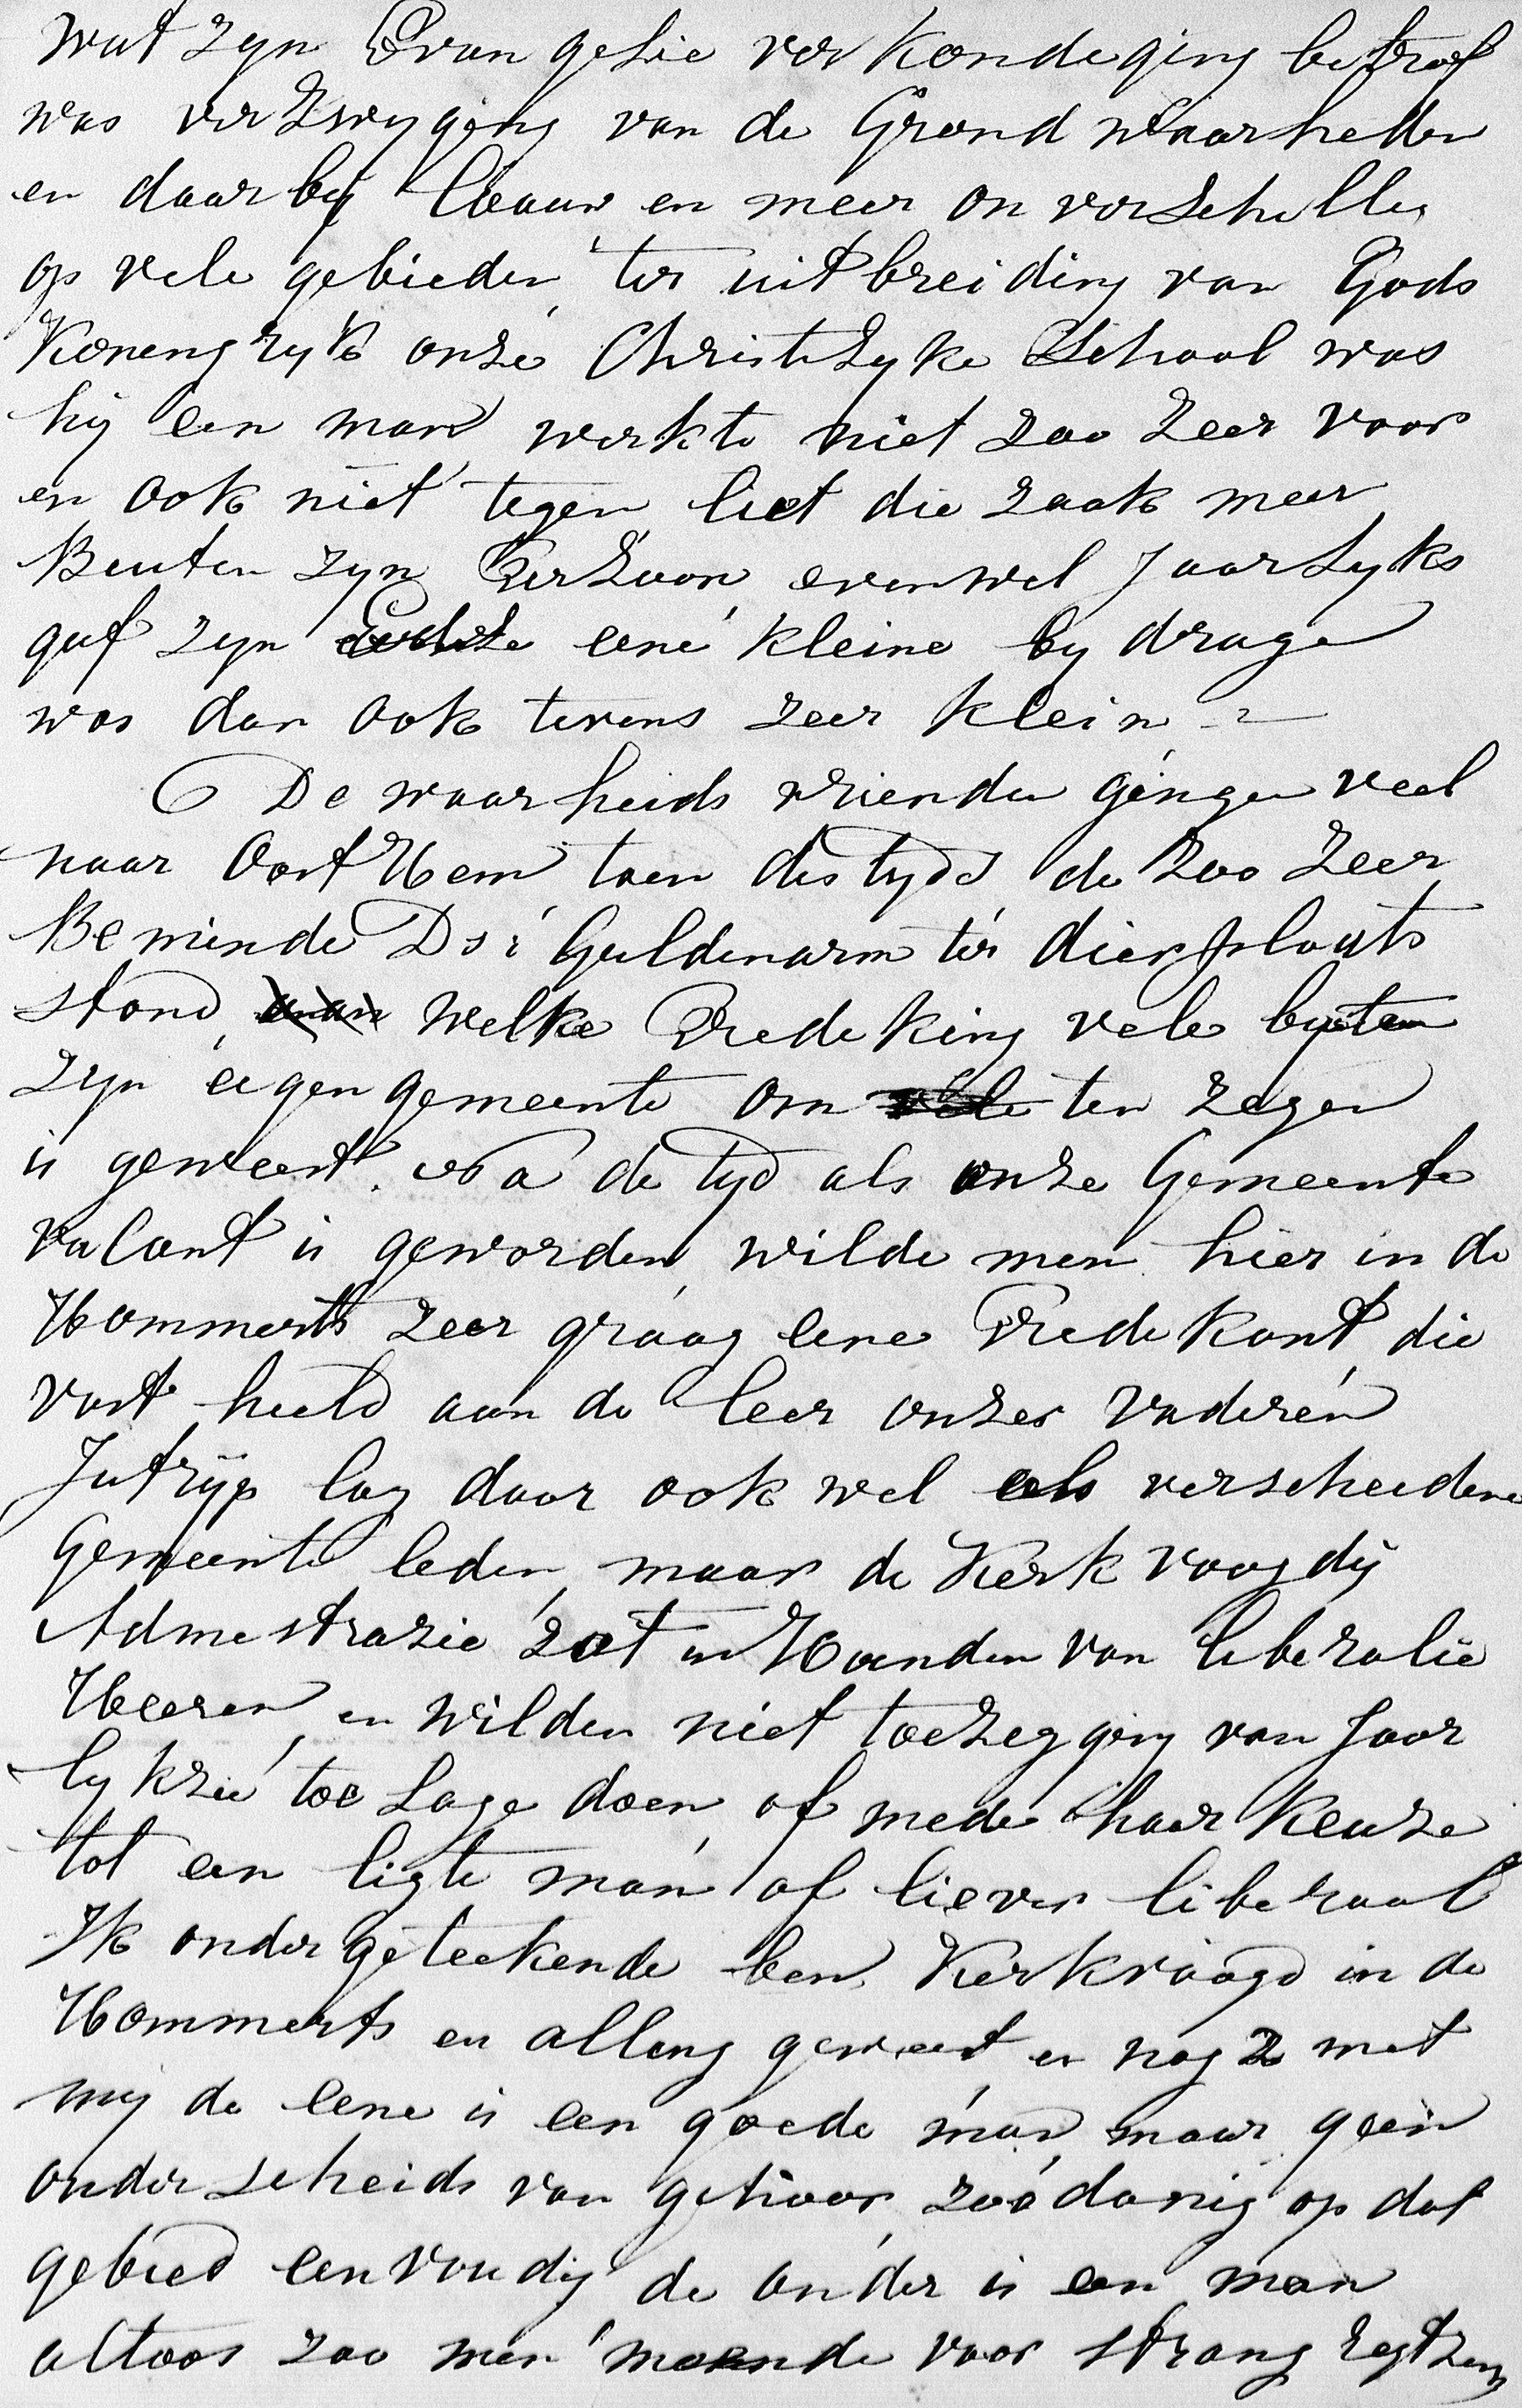 wat zyn Evangelie verkondeging betrof
was verzwyging van de Grond waarheden
en daar by laauw en meer onverschellig
op vele gebieden ter uitbreiding van Gods
Konengryk onze Christelyke School was
hij een man werkte niet zoo zeer voor
en ook niet tegen liet die zaak meer
Beuten zyn Perzoon evenwel Jaarlyks
gaf zyn eene kleine by drage
was dan ook tevens zeer klein
De waarheids vrienden gingen veel
naar Oosthem toen destyds de zoo zeer
Beminde Ds: Guldenarm ter dier plaats
stond welke Predeking vele buiten
zyn eigen gemeente om ten zegen
is geweest. Na de tyd als onze Gemeente
vacant is geworden wilde men hier in de
Hommerts zeer graag eene Predekant die
vast hield aan de leer onzer vaderen
Jutrijp lag daar ook wel als verscheidene
Gemeente leden maar de Kerk voogdij
Admestrazie zat in Handen van liberalie
Heeren en wilden niet toezegging van Jaar
lykzie toe lage doen of mede haar keuze
tot een ligte man of liever liberaal
Ik ondergeteekende ben Kerkvoogd in de
Hommerts en alleng geweest en nog 2 met
mij de eene is een goede man maar geen
onderscheids van gehoor zoodanig op dat
gebied eenvoudig de ander is een man
altoos zoo men meende voor strang regtzen